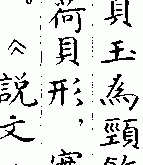 貝玉為頸
荷貝形，
。《說文